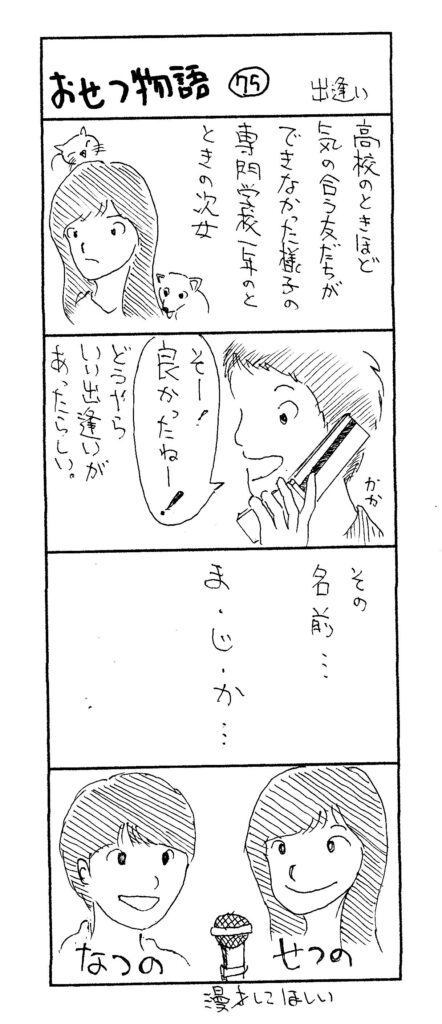 おせつ物語 75
出逢い
高校のときほど
気の合う友だちが
できなかった様子の
専門学校一年のと
ときの次女
そー!
良かったねー!
かか
どうやら
いい出逢いが
あったらしい。
その
名前…
ま・じ・か…
せつの
なつの
漫才してほしい